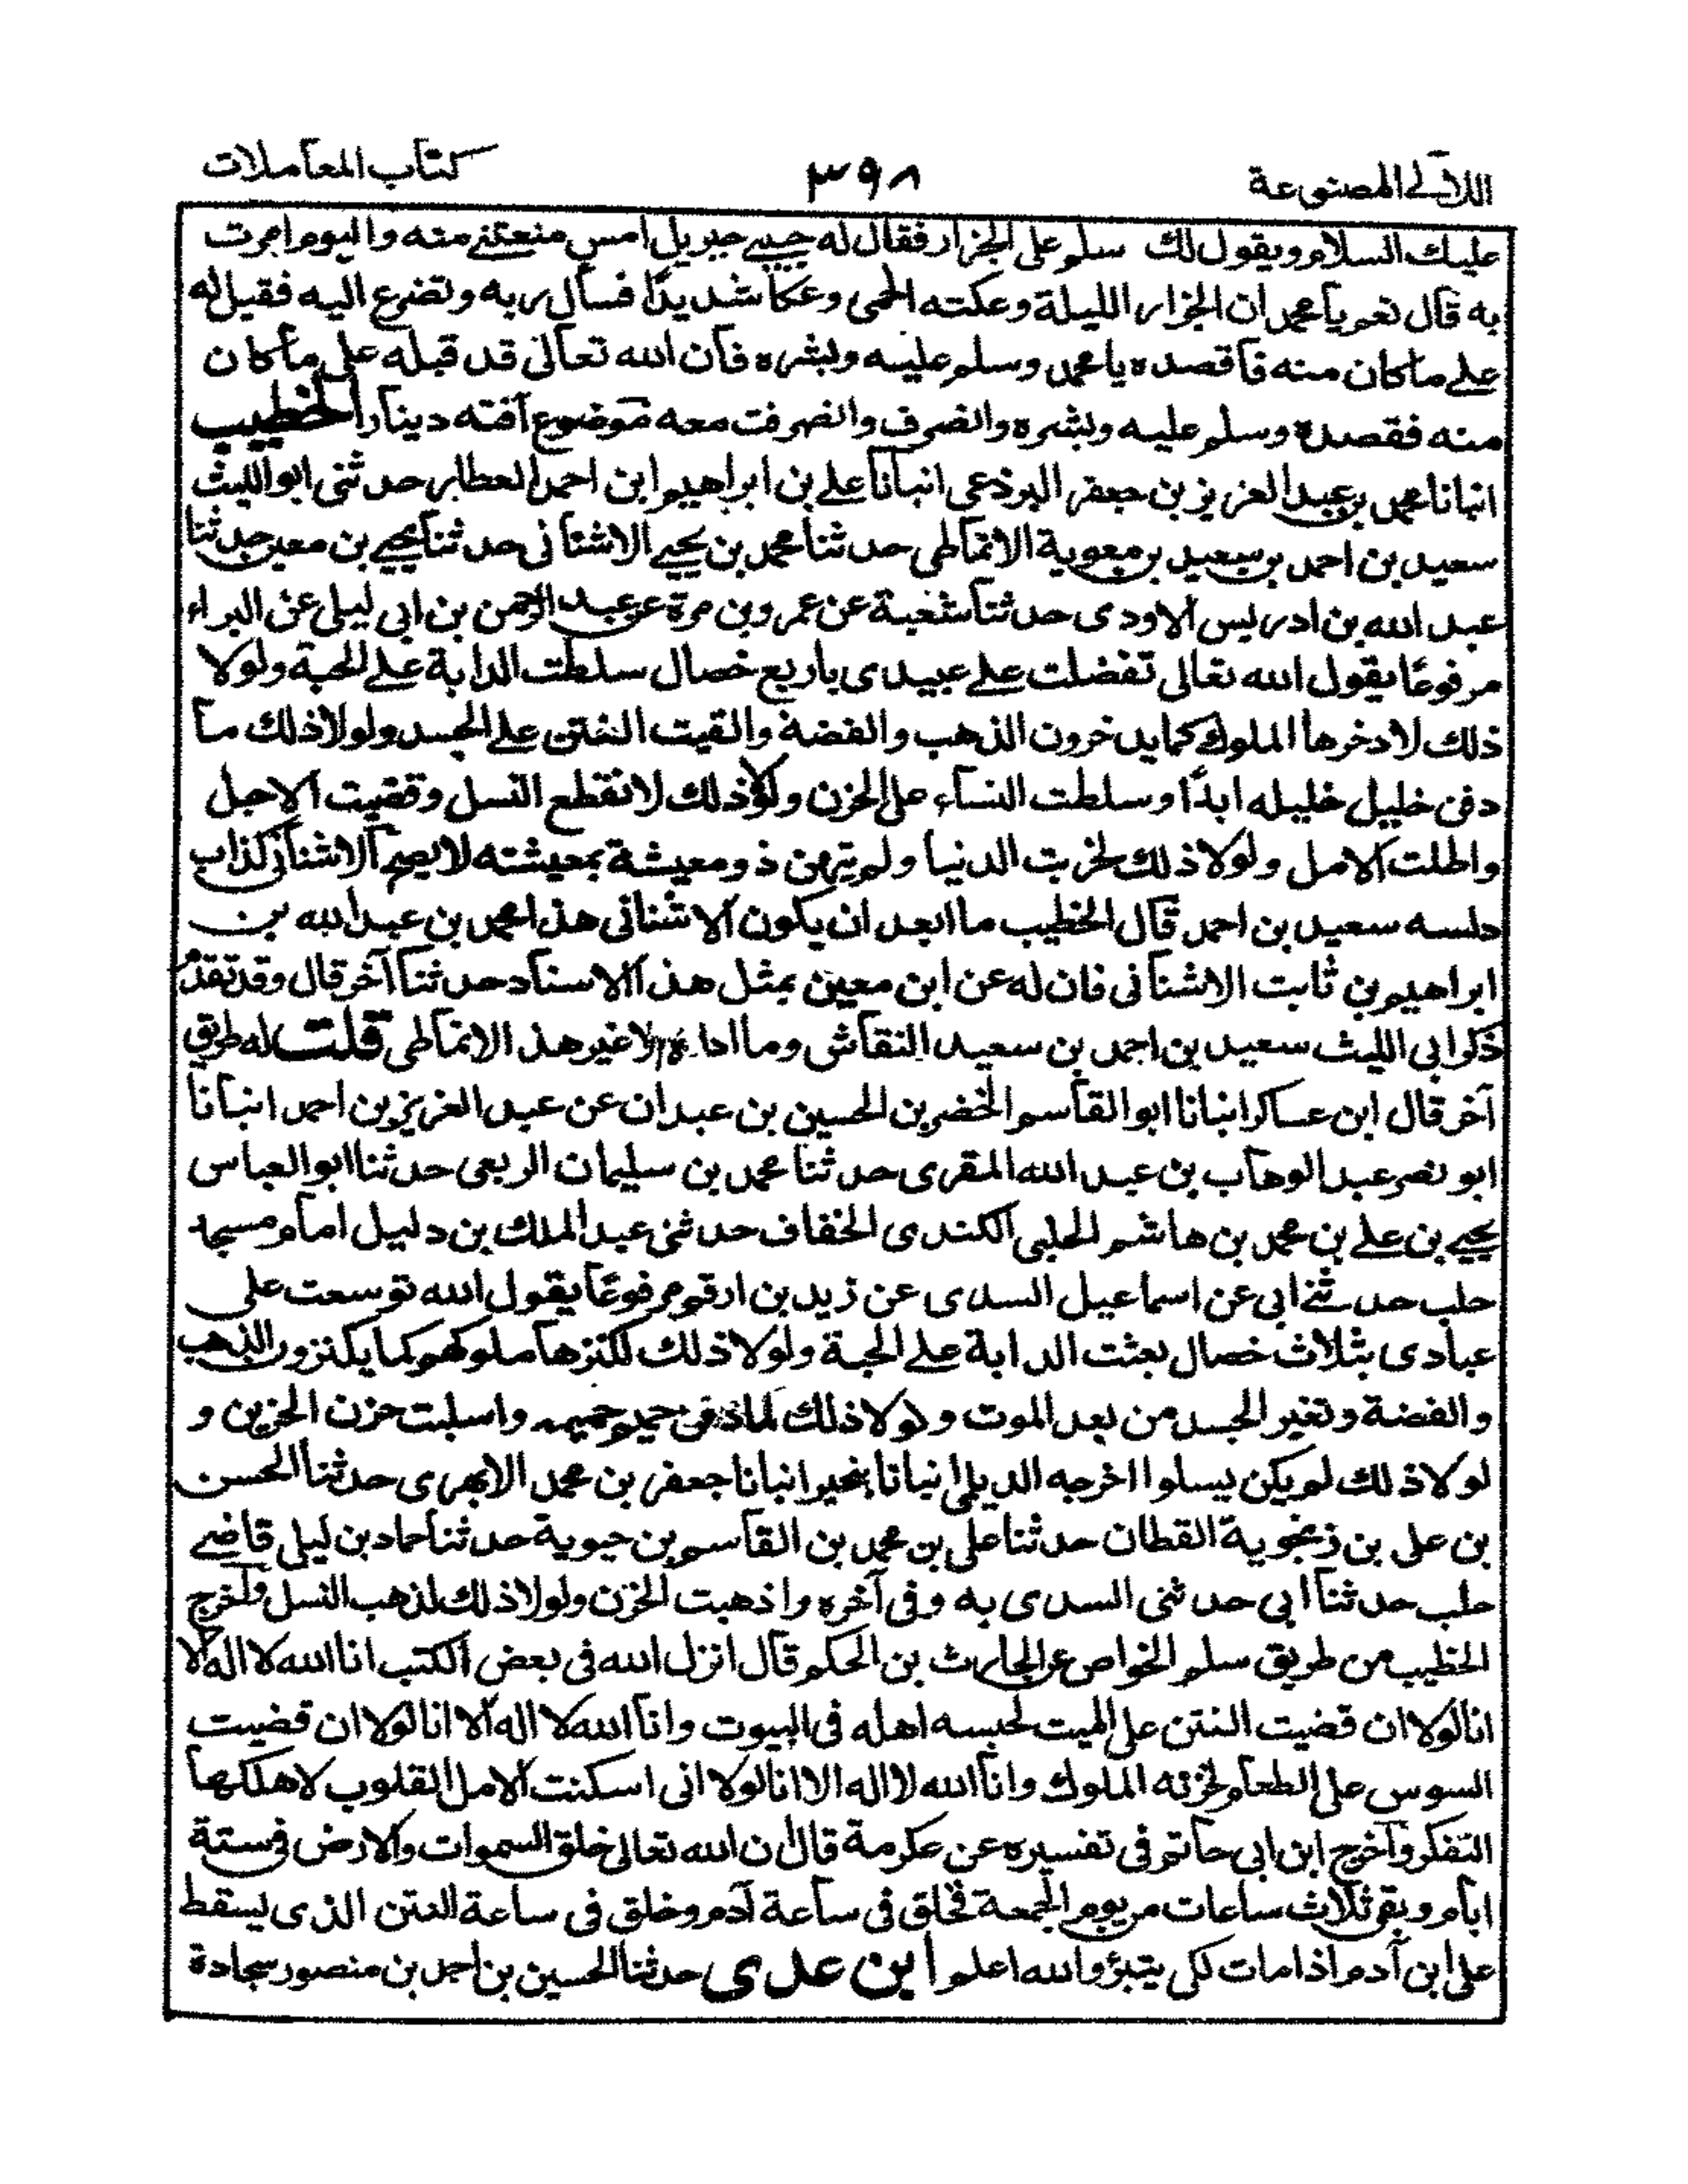 اللآلي المصنوعة ٣٩٨ كتاب المعاملات
عليك السلام ويقول لك سلم على الجزار فقال له حبيبي جبريل امس منعتني منه واليوم امرت
به قال نعم يا محمد ان الجزار الليلة وعكته الحمى وعكا شديدًا فسأل ربه وتضرع اليه فقيل له
على ما كان منه فاقصده يا محمد وسلم عليه وبشره فان الله تعالى قد قبله على ما كان
منه فقصده وسلم عليه وبشره وانصرف وانصرفت معه موضوع آفته دينار الخطيب
انبانا محمد بن عبد العزيز بن جعفر البرذعى انبانا علي بن ابراهيم ابن احمد العطار حدثنى ابو الليث
سعيد بن احمد بن سعيد بن معوية الانماطى حدثنا محمد بن يحيى الاشنانى حدثنا يحيى بن معين حدثنا
عبد الله بن ادريس الاودى حدثنا شعبة عن عمرو بن مرة عن عبد الرحمن بن ابى ليلى عن البراء
مرفوعًا يقول الله تعالى تفضلت على عبيدى باربع خصال سلطت الدابة على الحبة ولولا
ذلك لادخرها الملوك كما يدخرون الذهب والفضة والقيت النتن على الجسد ولولا ذلك ما
دفن خليل خليله ابدًا وسلطت النساء على الحزن ولولا ذلك لانقطع النسل وقضيت الاجل
واطلت الامل ولولا ذلك لخربت الدنيا ولم يتهن ذو معيشة بمعيشته لا يصح الاشنانى كذاب
دلسه سعيد بن احمد قال الخطيب ما ابعد ان يكون الاشنانى هذا محمد بن عبد الله بن
ابراهيم بن ثابت الاشنانى فان له عن ابن معين بمثل هذا الاسناد حدثنا آخر قال وقد تقدم
ذكر ابى الليث سعيد بن احمد بن سعيد النقاش وما اداه الا غير هذا الانماطى قلت له طريق
آخر قال ابن عساكر انبانا ابو القاسم الخضر بن الحسين بن عبدان عن عبد العزيز بن احمد انبانا
ابو نصر عبد الوهاب بن عبد الله المقرى حدثنا محمد بن سليمان الربعى حدثنا ابو العباس
يحيى بن علي بن محمد بن هاشم الحلبى الكندى الخفاف حدثنى عبد الملك بن دليل امام مسجد
حلب حدثني ابى عن اسماعيل السدى عن زيد بن ارقم مرفوعًا يقول الله توسعت على
عبادى بثلاث خصال بعثت الدابة على الحبة ولولا ذلك لكنزها ملوكهم كما يكنزون الذهب
والفضة وتغير الجسد من بعد الموت ولولا ذلك لما دفن حميم حميمه واسليت حزن الحزين و
لولا ذلك لم يكن يسلوا اخرجه الديلمى انبانا بنجير انبانا جعفر بن محمد الابهرى حدثنا الحسن
بن على بن زنجوية القطان حدثنا على بن محمد بن القاسم بن حيوية حدثنا حماد بن ليلى قاضى
حلب حدثنا ابى حدثنى السدى به وفى آخره واذهبت الحزن ولولا ذلك لذهب النسل واخرج
الخطيب من طريق سلم الخواص عن الحارث بن الحكم قال انزل الله فى بعض الكتب انا الله لا اله الا
انا لولا ان قضيت النتن على الميت لحبسه اهله فى البيوت وانا الله لا اله الا انا لولا ان قضيت
السوس على الطعام لخزنه الملوك وانا الله لا اله الا انا لولا انى اسكنت الامل القلوب لاهلكها
التفكر وآخرج ابن ابى حاتم فى تفسيره عن عكرمة قال ان الله تعالى خلق السموات والارض فى ستة
ايام وبقى ثلاث ساعات من يوم الجمعة فخلق فى ساعة آدم وخلق فى ساعة النتن الذى يسقط
على ابن آدم اذا مات لكى يتبرؤ والله اعلم ابن عدى حدثنا الحسين بن احمد بن منصور سجادة